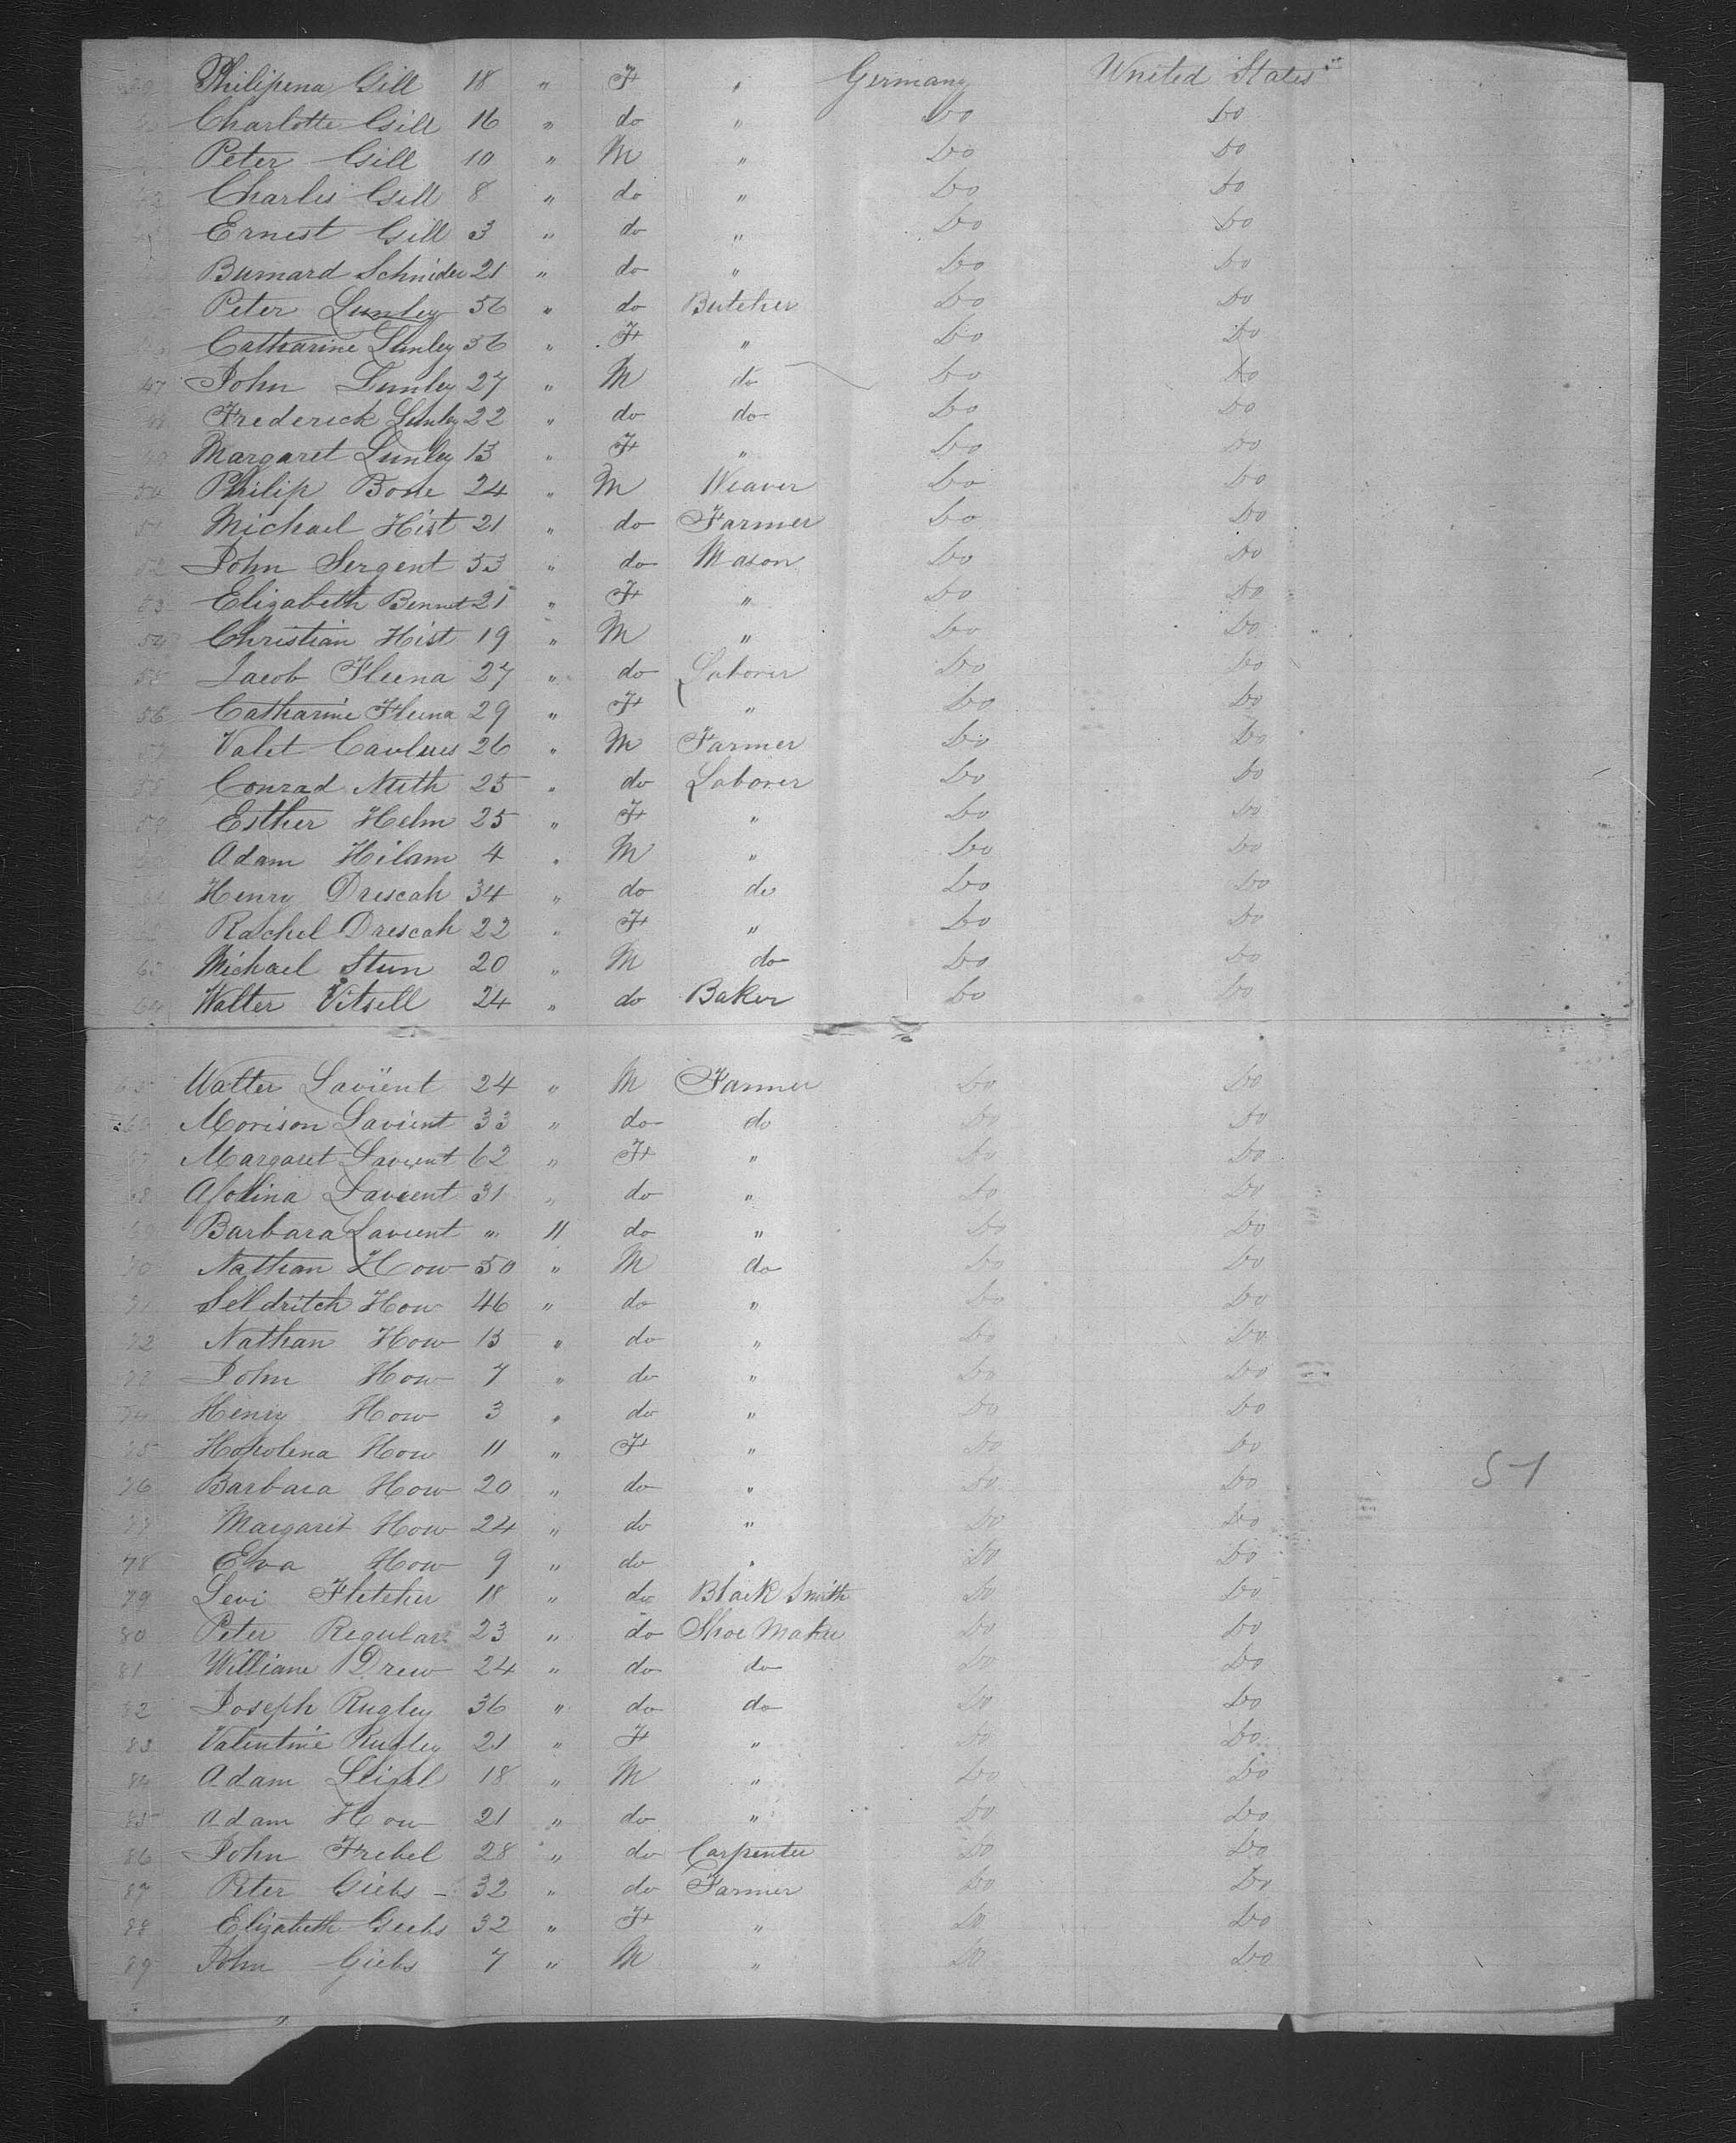 Philipena Gill 18 " F " Germany United States
Charlotte Gill 16 " do " Do Do
Peter Gill 10 " M " Do Do
Charles Gill 8 " do " Do Do
Ernest Gill 3 " do " Do Do
Burnard Schnider 21 " do " Do Do
Peter Lunley 56 " do Butcher Do Do
Catharine Lunley 56 " F " Do Do
47 John Lunley 27 " M do Do Do
48 Frederick Lunley 22 " do do Do Do
49 Margaret Lunley 13 " F " Do Do
50 Philip Bone 24 " M Weaver Do Do
51 Michael Hist 21 " do Farmer Do Do
52 John Sergent 53 " do Mason Do Do
53 Elizabeth Bennet 21 " F " Do Do
54 Christian Hist 19 " M " Do Do
55 Jacob Fleena 27 " do Laborer Do Do
56 Catharine Fleena 29 " F " Do Do
57 Valet 26 " M Farmer Do Do
58 Conrad Muth 25 " do Laborer Do Do
59 Esther Helm 25 " F " Do Do
Adam Hilam 4 " M " Do Do
61 Henry Drescah 34 " do do Do Do
Rachel Drescah 22 " F " Do Do
63 Michael Stun 20 " M do Do Do
64 Walter Vitsell 24 " do Baker Do Do
65 Walter Lavient 24 " M Farmer Do Do
66 Morison Lavient 33 " do do Do Do
67 Margaret Lavient 62 " F " Do Do
68 Lavient 31 " do " Do Do
69 Barbara Lavient " 11 do " Do Do
70 Nathan How 50 " M do Do Do
71 Seldritch How 46 " do " Do Do
72 Nathan How 13 " do " Do Do
73 John How 7 " do " Do Do
74 Henry How 3 " do " Do Do
75 Hopolena How 11 " F " Do Do
76 Barbara How 20 " do " Do Do
77 Margaret How 24 " do " Do Do
78 Eva How 9 " do " Do Do
79 Levi Fletcher 18 " do Black Smith Do Do
80 Peter Regular 23 " do Shoe Maker Do Do
81 William Drew 24 " do do Do Do
82 Joseph Rugley 36 " do do Do Do
83 Valentine Rugley 21 " F " Do Do
84 Adam Leigel 18 " M " Do Do
85 Adam How 21 " do " Do Do
86 John Frebel 28 " do Carpenter Do Do
87 Peter Giebs 32 " do Farmer Do Do
88 Elizabeth Giebs 32 " F " Do Do
89 John Giebs 7 " M " Do Do
51